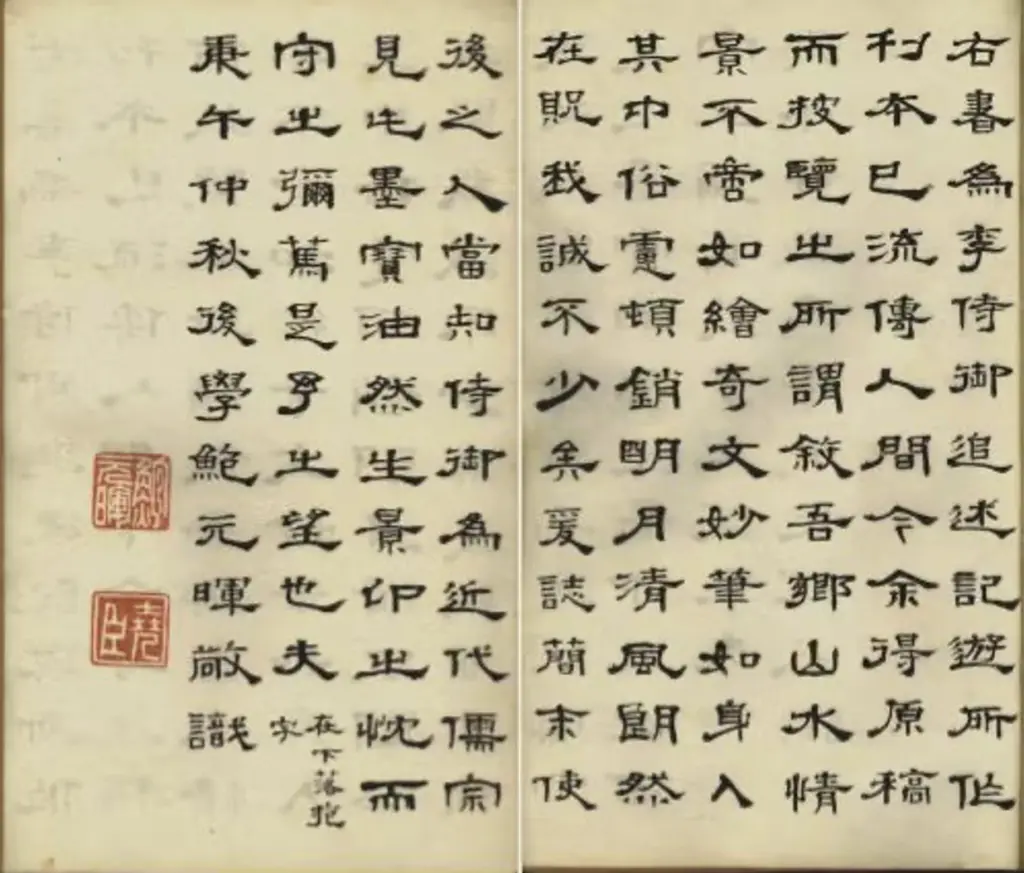 右書為李侍御追述記遊所作
刊本已流傳人間今余得原稿
而披覽之所謂吾鄉山水情
景不啻如繪奇文妙筆如身入
其中俗慮頓銷明月清風朗然
在貺我誠不少矣爰誌簡末使
後之人當知侍御為近代儒宗
見此墨寶油然生景仰之忱而
守之彌篤是予之望也夫
在下落抱
字
庚午仲秋後學鮑元暉敬識
鮑元暉
堯臣